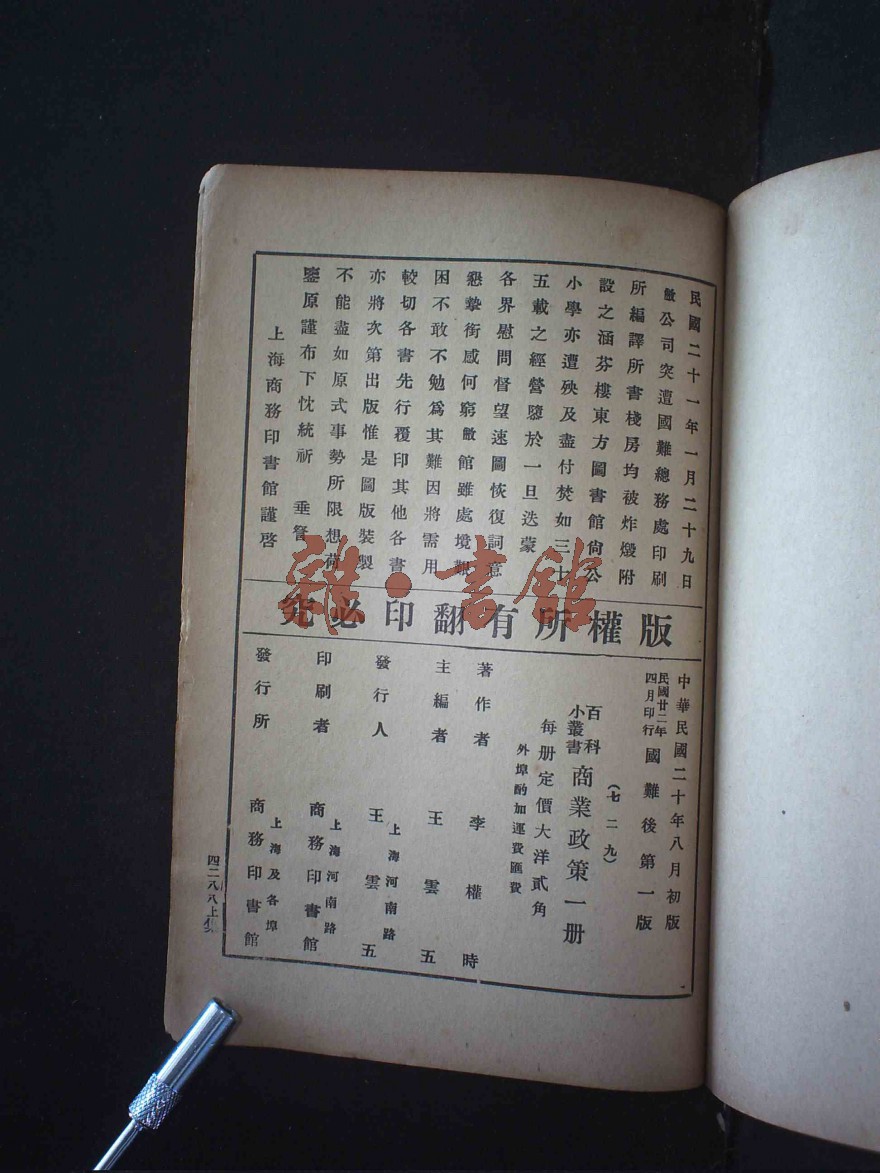 民國二十一年一月二十九日
敝公司突遭國難總務處印刷
所編譯所書棧房均被炸燬附
設之涵芬樓東方圖書館尙公
小學亦遭殃及盡付焚如三十
五載之經營隳於一旦迭蒙
各界慰問督望速圖恢復詞意
懇摯銜感何窮敝館雖處境艱
困不敢不勉爲其難因將需用
較切各書先行覆印其他各書
亦將次第出版惟是圖版裝製
不能盡如原式事勢所限想荷
鑒原謹布下忱統祈 垂詧
上海商務印書館謹啓
版權所有翻印必究
中華民國二十年八月初版
民國廿二年四月印行 國難後第一版
(七二九)
百科小叢書 商業政策一册
每册定價大洋貳角
外埠酌加運費匯費
著作者 李權時
主編者 王雲五
發行人 上海河南路 王雲五
印刷者 上海河南路 商務印書館
發行所 上海及各埠 商務印書館
四二八八上
雜·書館